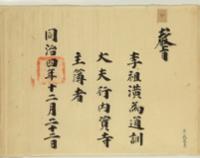 教旨
李祖潢爲通訓
大夫行内資寺
主簿者
同治四年十二月二十二日